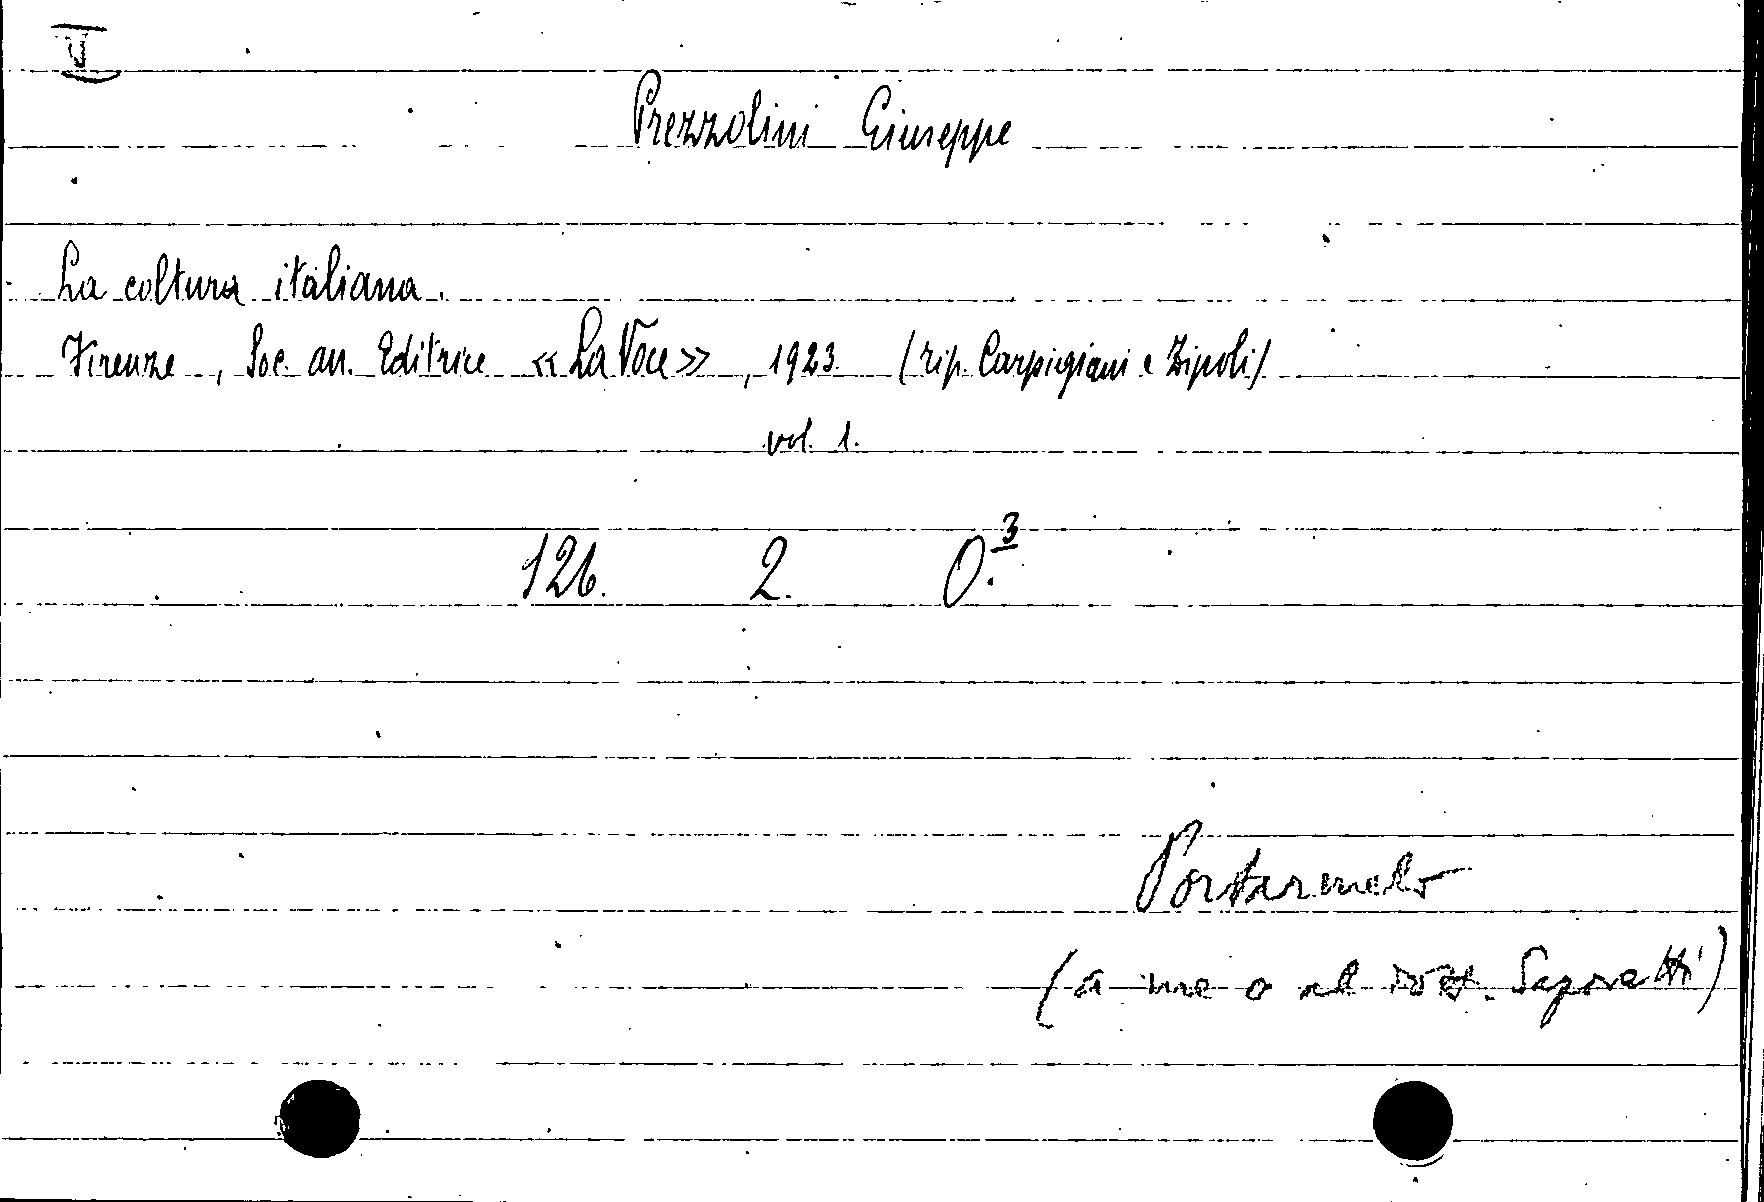 V
Prezzolini Giuseppe
La coltura italiana.
Firenze, Soc. an. Editrice «La Voce», 1923 (tip. Carpigiani e Zipoli)
vol. 1.
126. 2. O.3
Portarmelo
(a me o al dott. Saporetti)